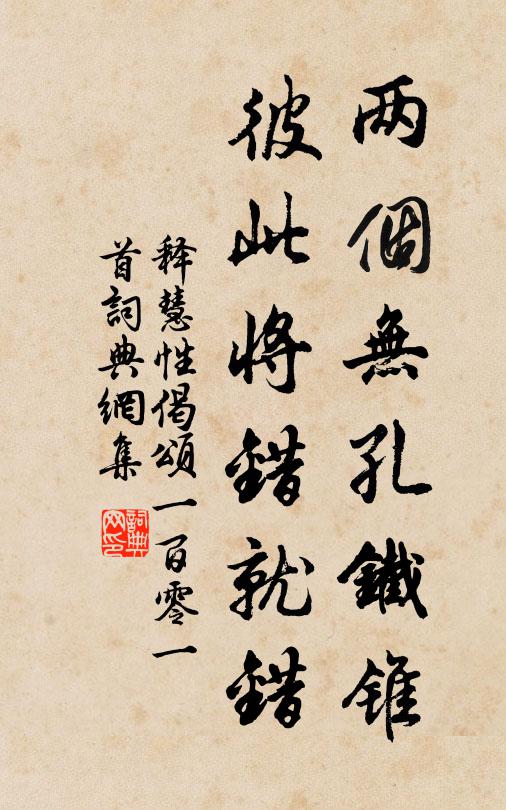 两個無孔鐵錐
彼此將錯就錯
释慧性偈頌一百零一
首詞典網集
詞典网印